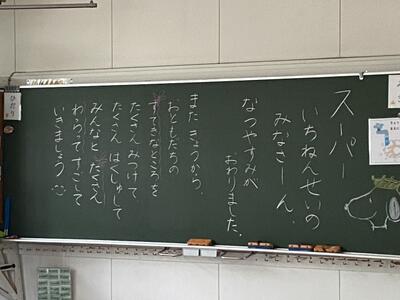 スーパー
いちねんせいの
みなさーん、
なつやすみが
おわりました。
また きょうから、
おともだちの
すてきなところを
たくさん みつけて
たくさん はくしゅして
みんなと たくさん
わらってすごして
いきましょう
ひだり